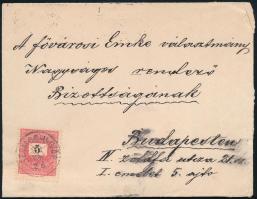 A fővárosi Emke választmány
Nagyságos rendező
Bizottságának
Budapesten
IV. zöldfa utcza
I. emelet 5. ajtó
5